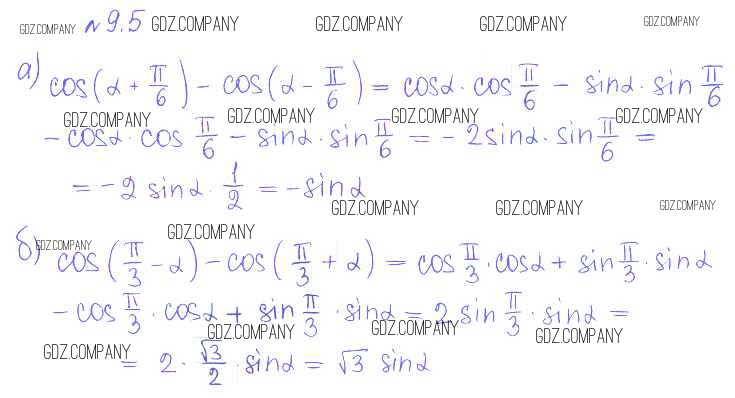 GDZ.COMPANY № 9.5 GDZ.COMPANY GDZ.COMPANY GDZ.COMPANY GDZ.COMPANY
а) cos(α + π/6) - cos(α - π/6) = cosα · cos π/6 - sinα · sin π/6
GDZ.COMPANY GDZ.COMPANY GDZ.COMPANY GDZ.COMPANY
- cosα · cos π/6 - sinα · sin π/6 = - 2 sinα · sin π/6 =
= -2 sinα · 1/2 = -sinα
GDZ.COMPANY GDZ.COMPANY GDZ.COMPANY
GDZ.COMPANY GDZ.COMPANY
б) cos(π/3 - α) - cos(π/3 + α) = cos π/3 · cosα + sin π/3 · sinα
- cos π/3 · cosα + sin π/3 · sinα = 2 sin π/3 · sinα =
GDZ.COMPANY GDZ.COMPANY GDZ.COMPANY
GDZ.COMPANY
= 2 · √3/2 · sinα = √3 sinα